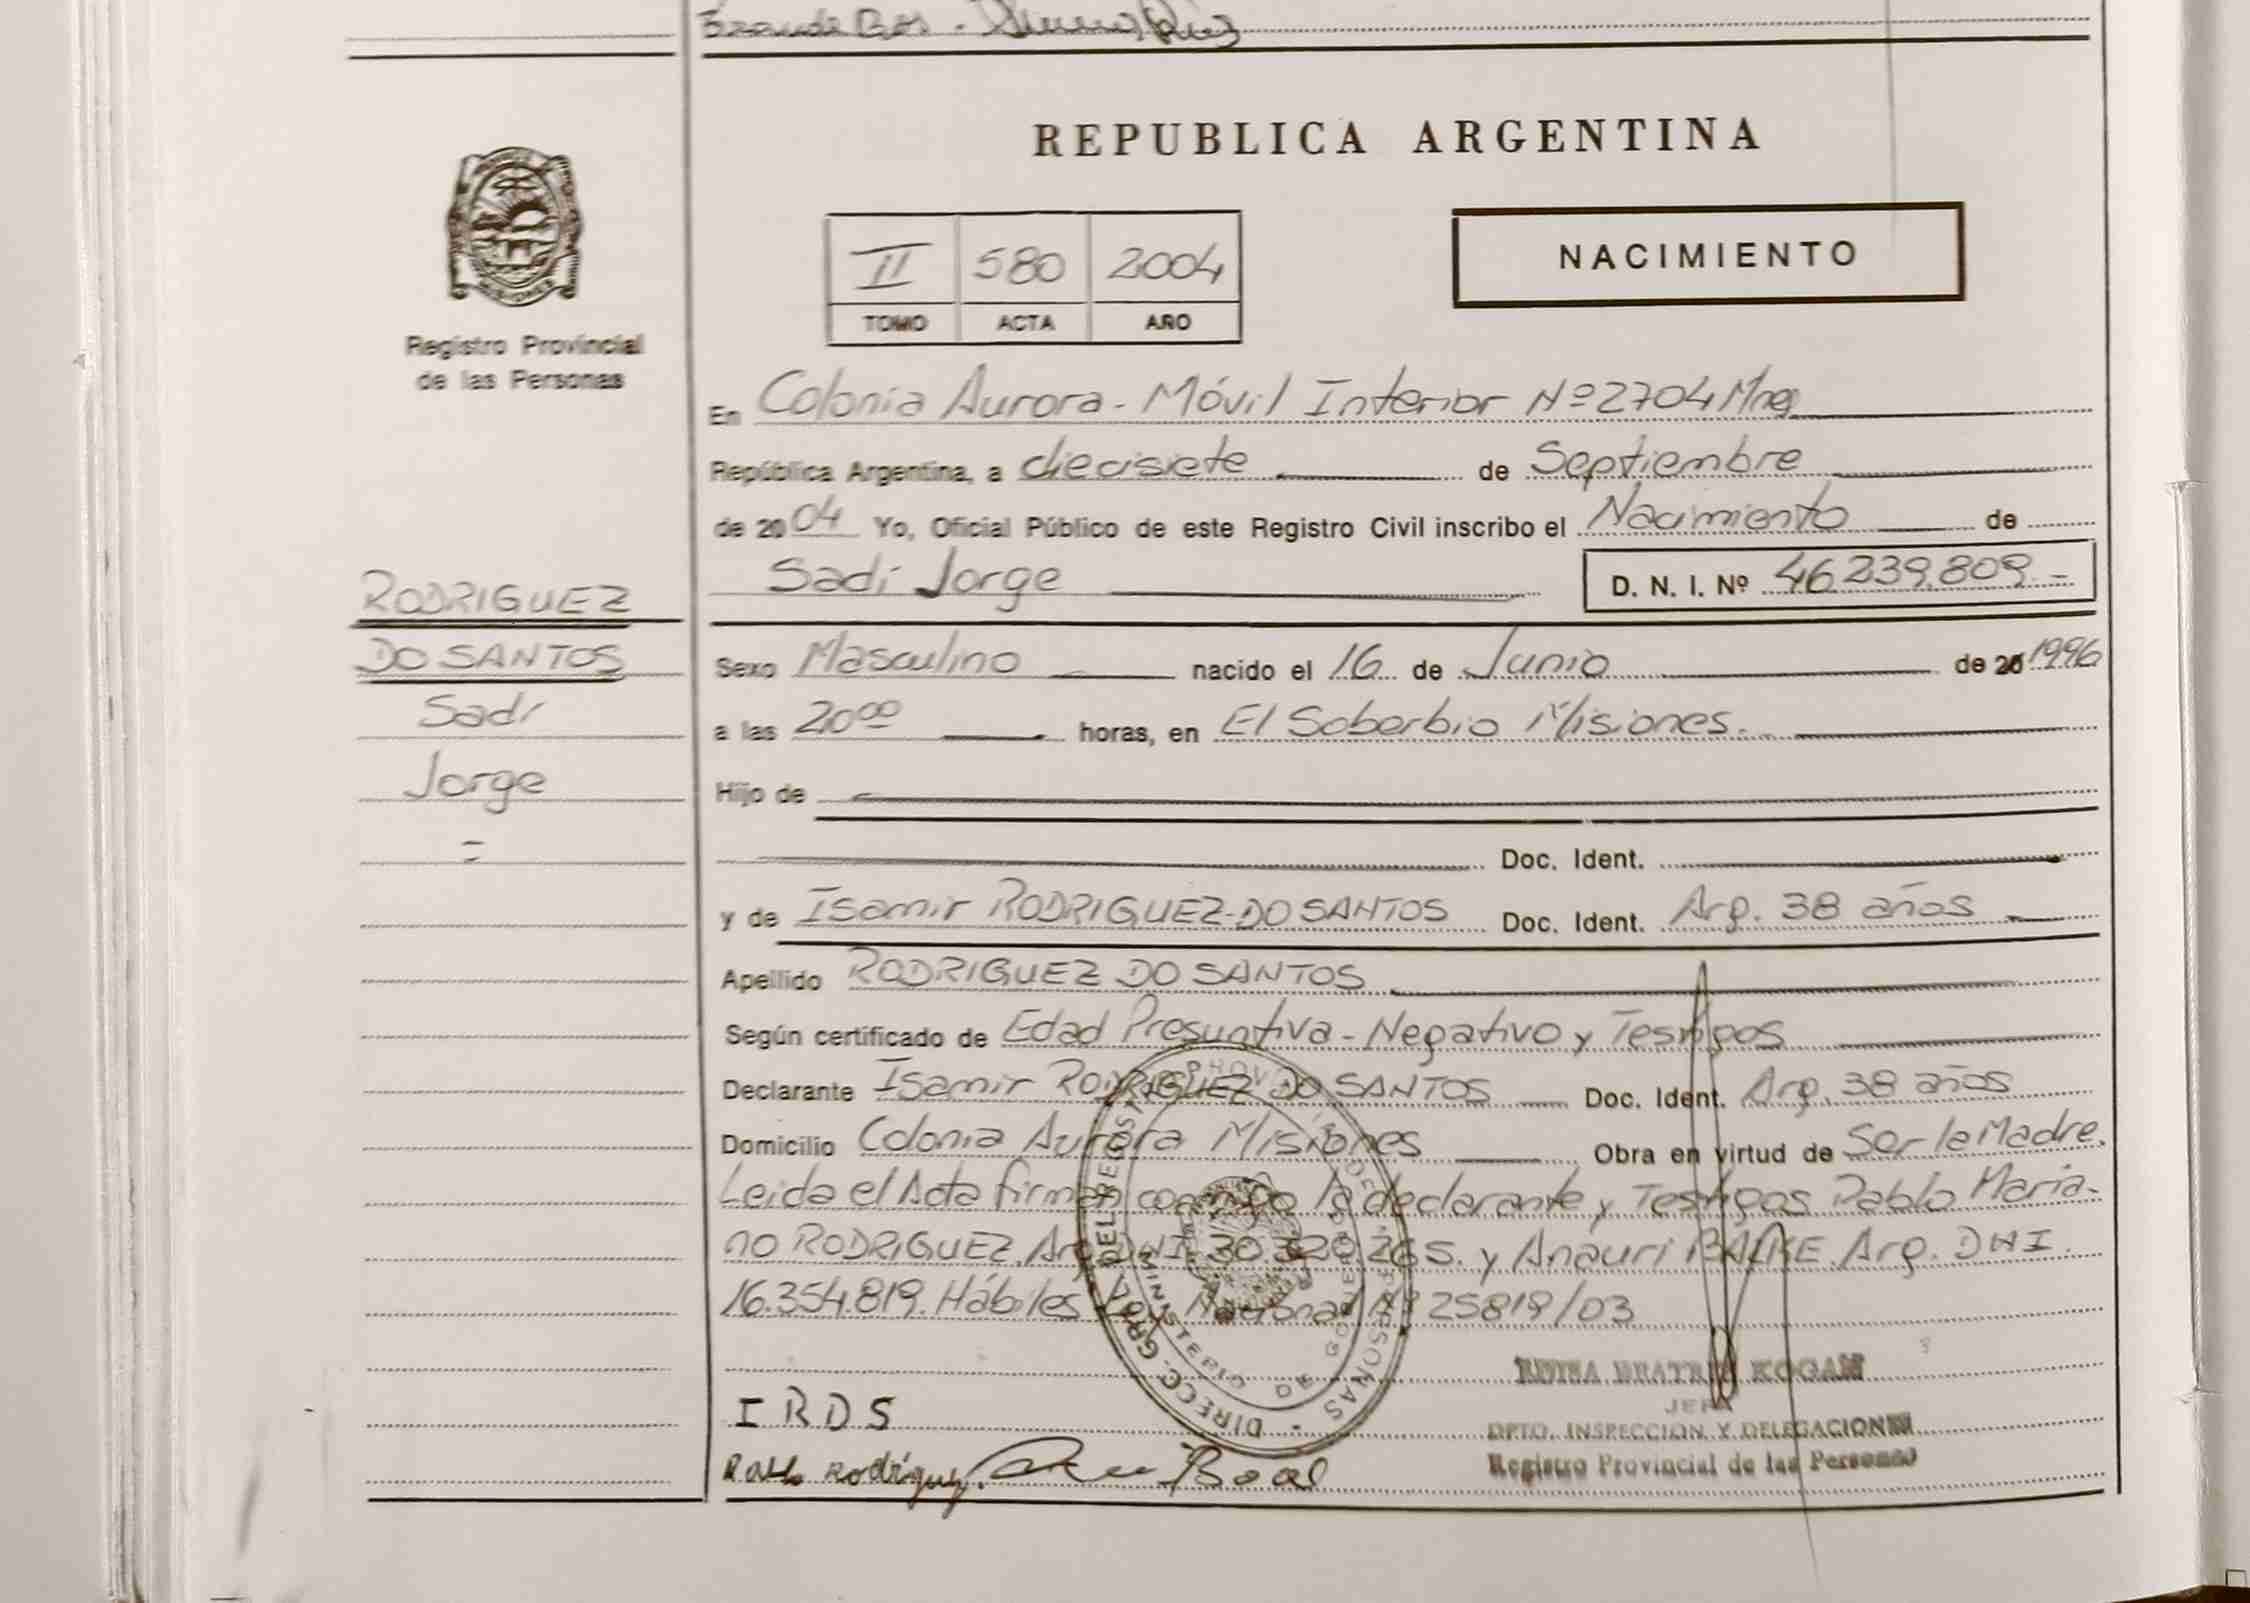 REPUBLICA ARGENTINA
NACIMIENTO
II 580 2004
TOMO ACTA AÑO
Registro Provincial
de las Personas
En Colonia Aurora - Móvil Interior Nº 2704 Mnes
República Argentina, a diecisiete de Septiembre
de 2004 Yo, Oficial Público de este Registro Civil inscribo el Nacimiento de
Sadi Jorge D. N. I. Nº 46.239.809.-
RODRIGUEZ
DO SANTOS
Sadi
Jorge
=
Sexo Masculino nacido el 16 de Junio de 20 1996
a las 20⁰⁰ horas, en El Soberbio Misiones.
Hijo de
Doc. Ident.
y de Isamir RODRIGUEZ-DO SANTOS Doc. Ident. Arg. 38 años
Apellido RODRIGUEZ DO SANTOS
Según certificado de Edad Presuntiva - Negativo y Testigos
Declarante Isamir RODRIGUEZ DO SANTOS Doc. Ident. Arg. 38 años
Domicilio Colonia Aurora Misiones Obra en virtud de Ser la Madre.
Leida el Acta firman conmigo la declarante y Testigos Pablo Maria-
no RODRIGUEZ. Arg. DNI. 30.320.265. y Anauri Arg. DNI.
16.354.819. Hábiles Ley Nacional Nº 25819/03
BEATRIZ KOGAN
JEFA
DPTO. INSPECCION Y DELEGACIONES
Registro Provincial de las Personas
I R D S
Pablo Rodríguez.
DIRECC. GRAL. DEL REGISTRO PROVINCIAL DE LAS PERSONAS
MINISTERIO DE GOBIERNO